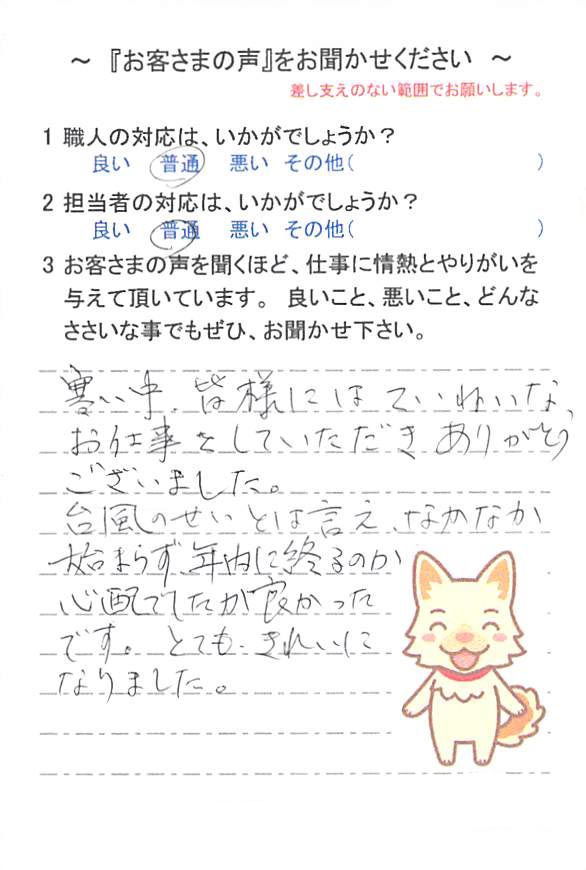 ～ 『お客さまの声』をお聞かせください ～
差し支えのない範囲でお願いします。
1 職人の対応は、いかがでしょうか？
良い 普通 悪い その他( )
2 担当者の対応は、いかがでしょうか？
良い 普通 悪い その他( )
3 お客さまの声を聞くほど、仕事に情熱とやりがいを
与えて頂いています。 良いこと、悪いこと、どんな
ささいな事でもぜひ、お聞かせ下さい。
寒い中、皆様にはていねいな
お仕事をしていただきありがとう
ございました。
台風のせいとは言え、なかなか
始まらず、年内に終るのか
心配でしたが良かった
です。とても、きれいに
なりました。